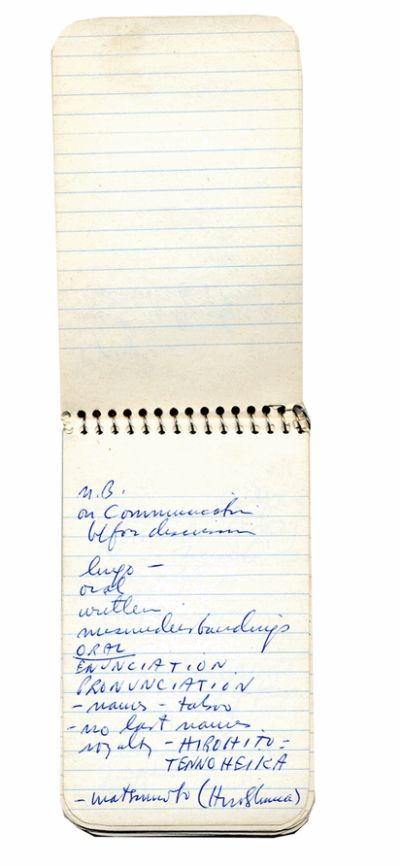 N.B.
on Communication
b/for discussion
lingo -
oral
written
misunderstandings
ORAL
ENUNCIATION
PRONUNCIATION
- names - taboo
- no last names
royalty - HIROHITO =
TENNO HEIKA
- Matsumoto (Hiroshima)